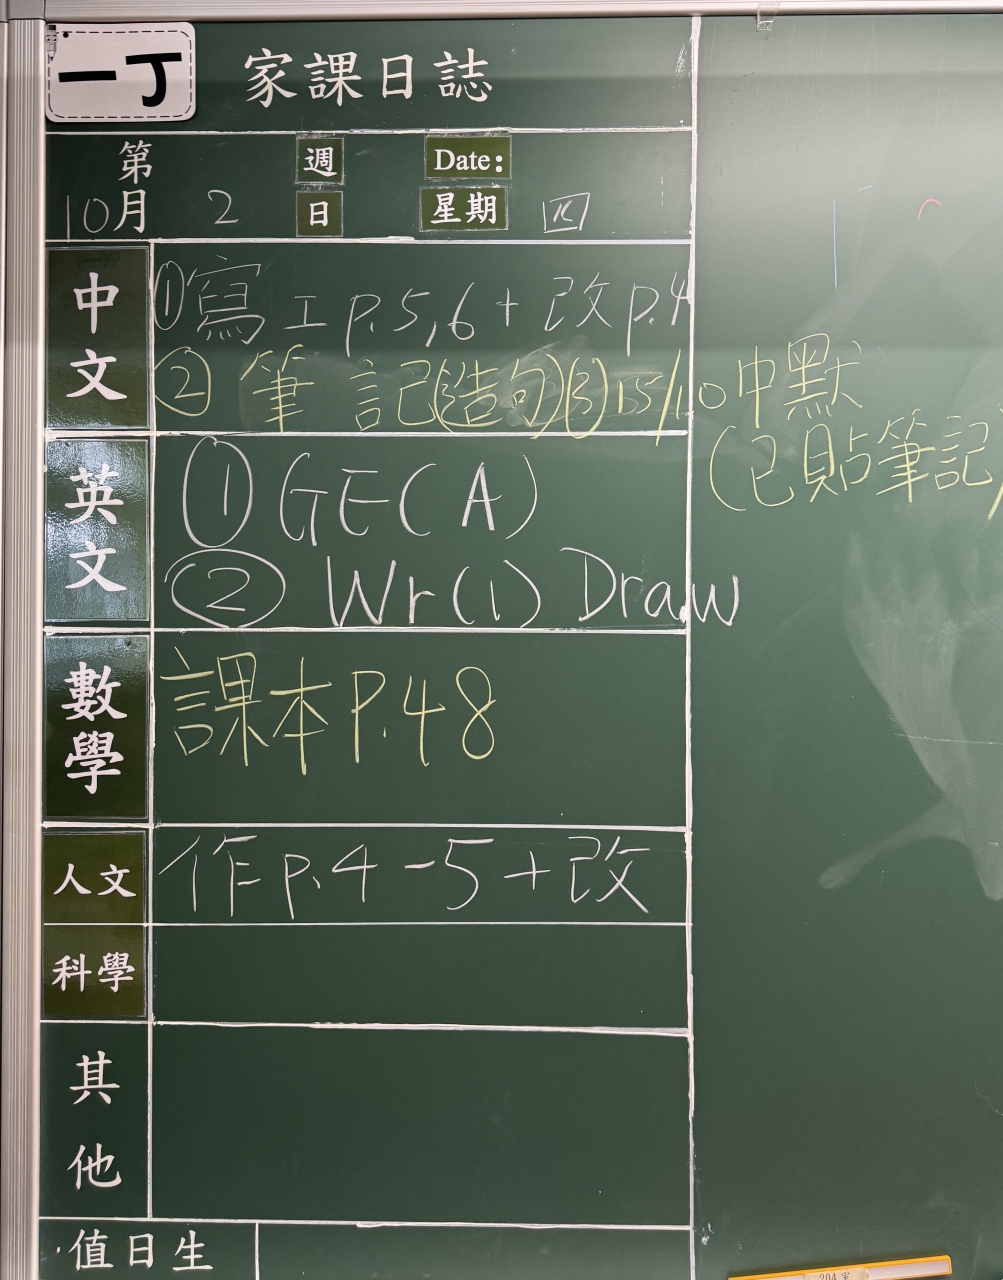 一丁 家課日誌
第 週 Date:
10月 2 日 星期 四
中文 ①寫工p.5,6+改p.4
②筆記(造句)③15/10中默
(已貼筆記)
英文 ①GE(A)
②Wr(1) Draw
數學 課本P.48
人文 作p.4-5+改
科學
其他
值日生